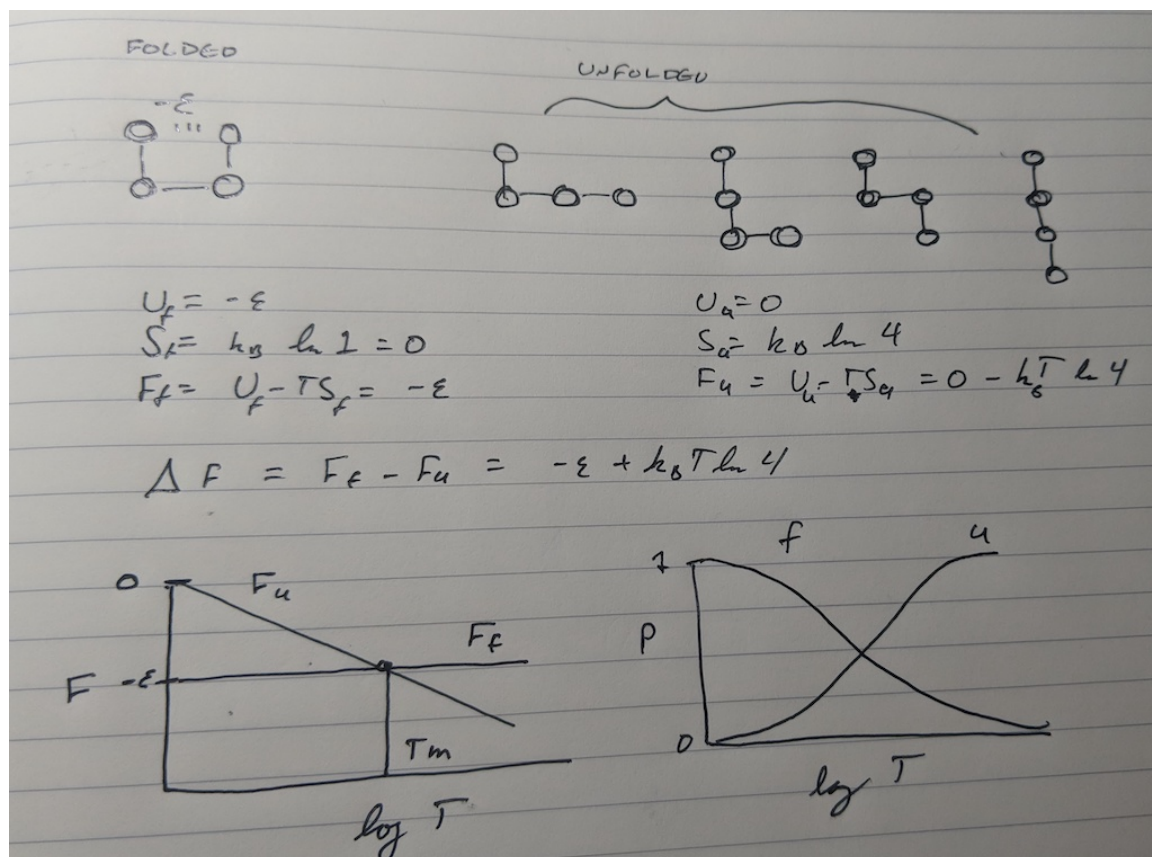 FOLDED
UNFOLDED
-ε
U_f = -ε
S_f = k_B ln 1 = 0
F_f = U_f - TS_f = -ε
U_u = 0
S_u = k_B ln 4
F_u = U_u - TS_u = 0 - k_B T ln 4
Δ F = F_f - F_u = -ε + k_B T ln 4
0
F_u
F_f
F -ε
Tm
log T
1
f
u
P
0
log T